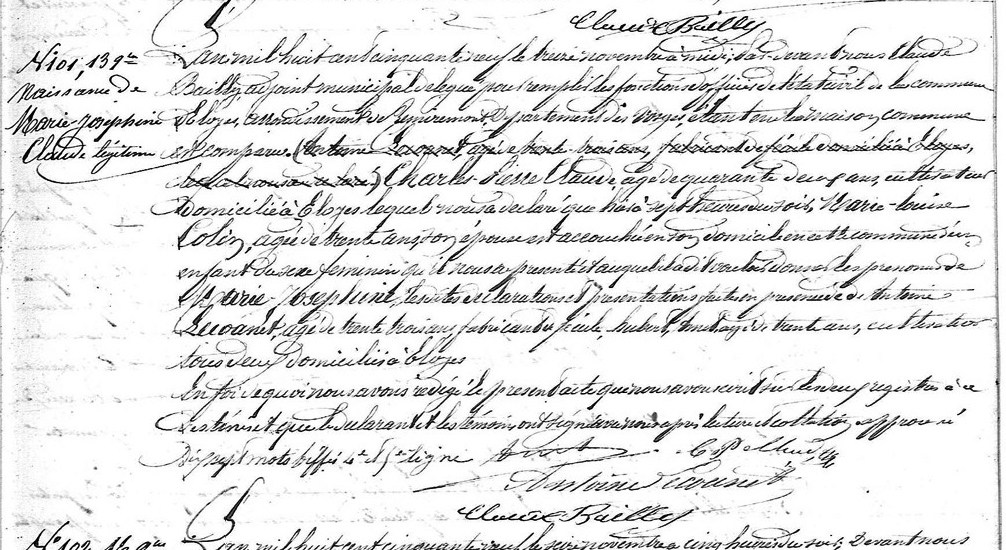 Claude Bailly
N 101, 13 9bre
Naissance de
Marie Josephine
Claude légitime
L'an mil huit cent cinquante neuf le treize novembre à midi, par devant nous Claude
Bailly, adjoint municipal délégué pour remplir les fonctions d'officier de l'état civil de la commune
d'Eloyes, arrondissement de Remiremont Département des Vosges, étant en la maison commune
est comparu (Antoine agé de trente-trois ans, fabricant de fécule domicilié à Eloyes,
lequel nous a déclaré) Charles Pierre Claude, agé de quarante deux ans, cultivateur
Domicilié à Eloyes lequel nous a déclaré que hier à sept heures du soir, Marie-louise
Colin, agée de trente ans son epouse est accouchée en son domicile en cette commune d'un
enfant du sexe feminin qu'il nous a presenté et auquel il a dit vouloir donner les prenoms de
Marie Josephine, lesdites declarations et presentations faites en presence de Antoine
agé de trente trois ans fabricant de fécule, hubert, agé de trente ans, cultivateur
tous deux domiciliés à Eloyes
En foi de quoi nous avons redigé le present acte que nous avons inscrit sur les deux registres à ce
destinés et que le declarant et les témoins ont signé avec nous après lecture et collation, approuvé
Dix sept mots biffés 4e et 5e ligne
C P Claude
Antoine
Claude Bailly
N 102, 16 9bre
L'an mil huit cent cinquante neuf le seize novembre à cinq heures du soir, Devant nous